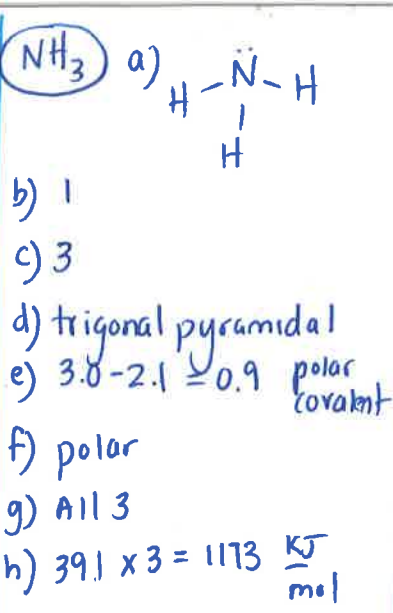 NH₃ a) H - N̈ - H
|
H
b) 1
c) 3
d) trigonal pyramidal
e) 3.0 - 2.1 = 0.9 polar covalent
f) polar
g) All 3
h) 391 x 3 = 1173 KJ/mol